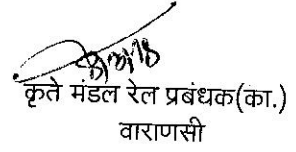 कृते मंडल रेल प्रबंधक(का.)
वाराणसी